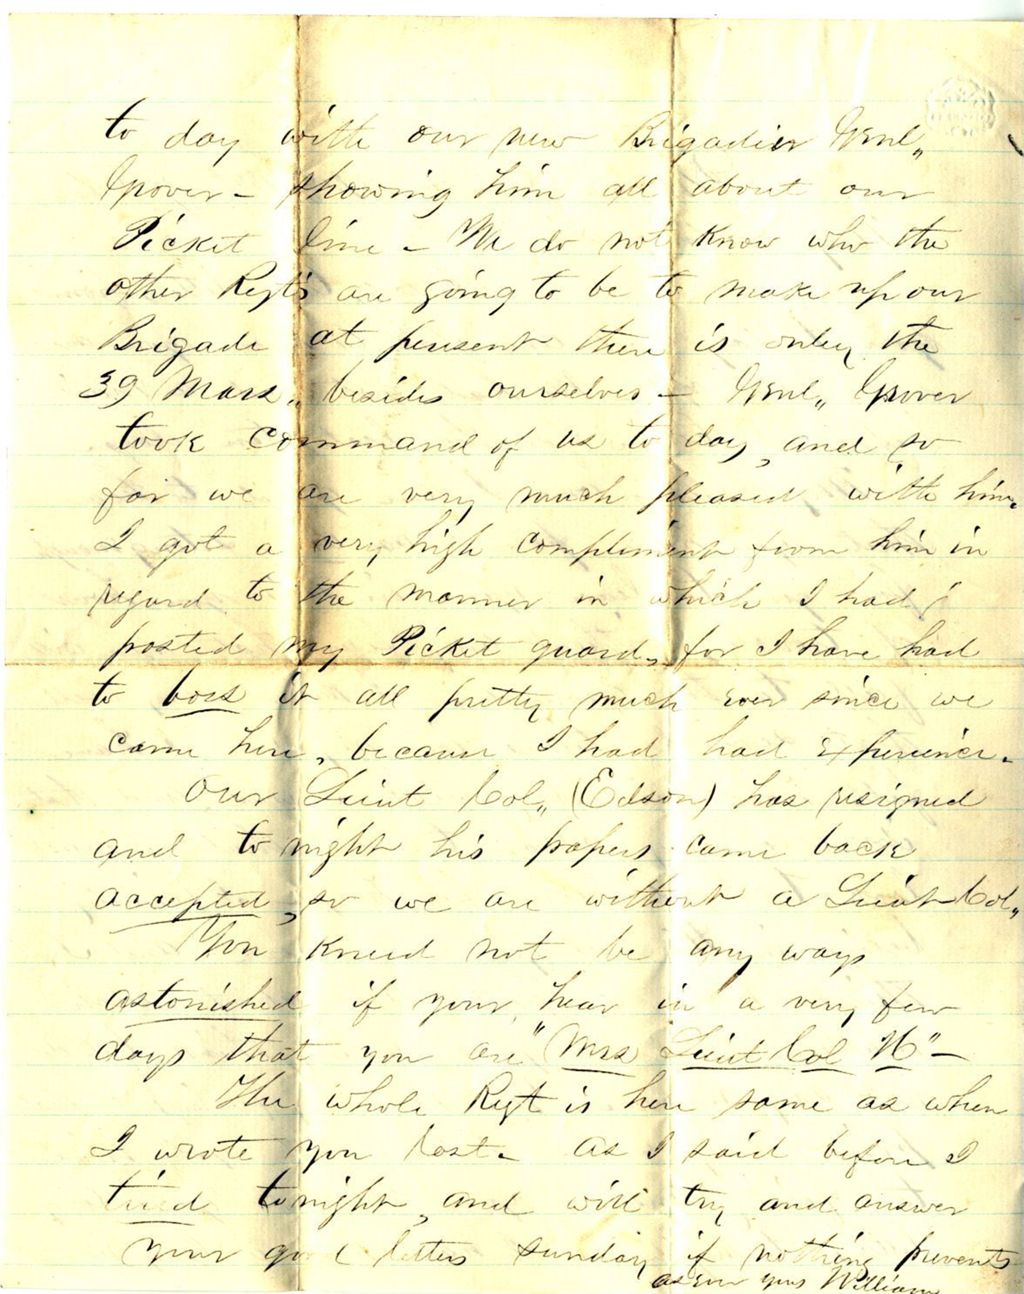 to day with our new Brigadier Genl,,
Grover – showing him all about our
Picket line – We do not know who the
other Regt's are going to be to make up our
Brigade at present there is only the
39 Mass,, besides ourselves – Genl,, Grover
took command of us to day, and so
far we are very much pleased with him.
I got a very high compliment from him in
regard to the manner in which I had
posted my Picket guard, for I have had
to boss it all pretty much ever since we
came here, because I had had experience.
Our Lieut Col,, (Edson) has resigned
and to night his papers came back
accepted, so we are without a Lieut Col,,
You kneed not be any ways
astonished if your hear in a very few
days that you are "Mrs Lieut Col H" –
The whole Regt is here same as when
I wrote you last – as I said before I
tired tonight, and will try and answer
your good letters sunday if nothing prevents
as ever yours William